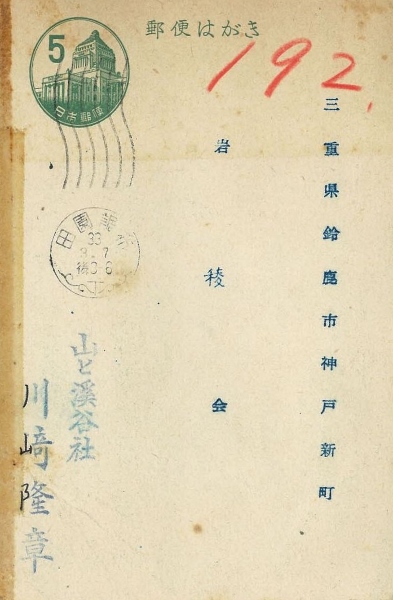 郵便はがき
5
日本郵便
192.
三重県鈴鹿市神戸新町
岩稜会
田園調布
33
山と溪谷社
川﨑隆章